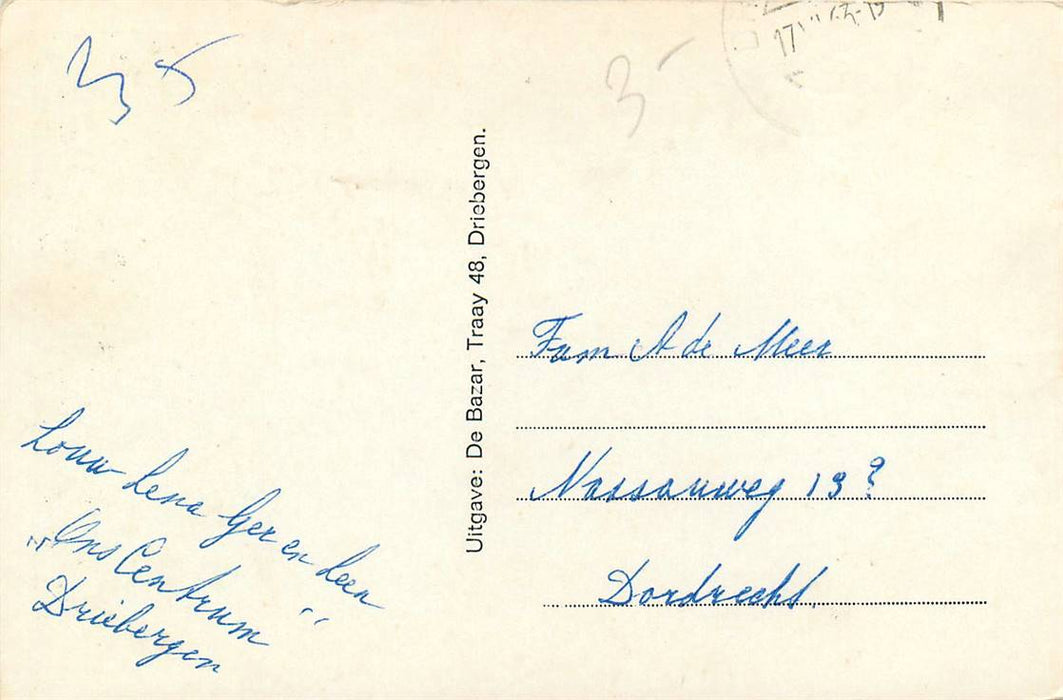 3,-
Louw Lena Ger en Leen
"Ons Centrum"
Driebergen
Uitgave: De Bazar, Traay 48, Driebergen.
3-
Fam A de Meer
Nassauweg 19?
Dordrecht